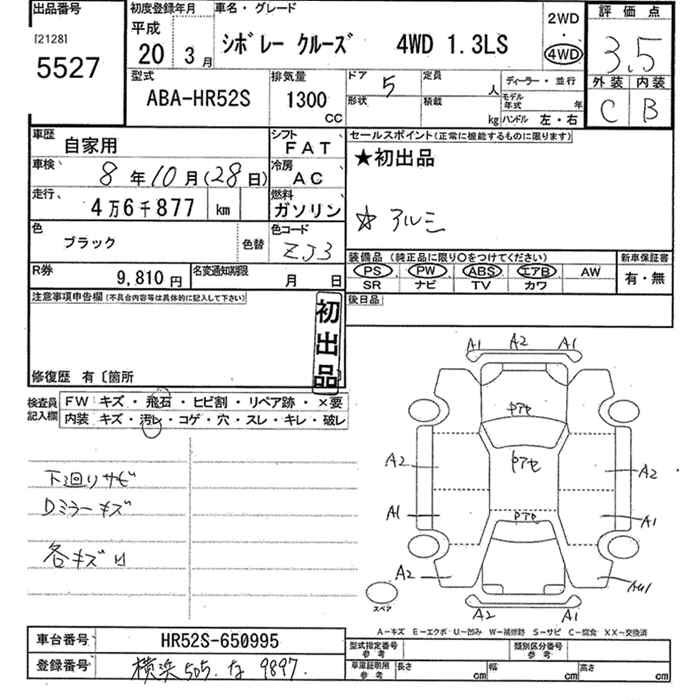 出品番号
[2128]
5527
初度登録年月
平成
20年 3月
車名・グレード
シボレー クルーズ 4WD 1.3LS
2WD
4WD
評価点
3.5
外装 内装
C B
型式
ABA-HR52S
排気量
1300
CC
ドア 5
定員 人
形状
積載 kg
ディーラー・並行
モデル年式 年
ハンドル 左・右
車歴 自家用
シフト FAT
車検 8年10月(28日)
冷房 AC
走行 4万6千877 km
燃料 ガソリン
色 ブラック 色替
色コード ZJ3
R券 9,810円
名変通知期限 月 日
セールスポイント(正常に機能するものに限ります)
★初出品
☆ アルミ
装備品(純正品に限り○をつけてください)
PS PW ABS エアB AW
SR ナビ TV カワ
新車保証書
有・無
後日品
注意事項申告欄(不具合内容等は具体的に記入して下さい)
初出品
修復歴 有〔箇所
検査員記入欄
FW キズ・飛石・ヒビ割・リペア跡・×要
内装 キズ・汚レ・コゲ・穴・スレ・キレ・破レ
下廻りサビ
Dミラーキズ
各キズU
A1 A2 A1
中アセ
A2 中アセ A2
A1 中アセ A1
A2 AU1
A2 A1
スペア
A−キズ E−エクボ U−凹み W−補修跡 S−サビ C−腐食 XX−交換済
車台番号 HR52S-650995
登録番号 横浜505 な 9897
型式指定番号 参考
類別区分番号 参考
車庫証明用 参考
長さ cm 幅 cm 高さ cm